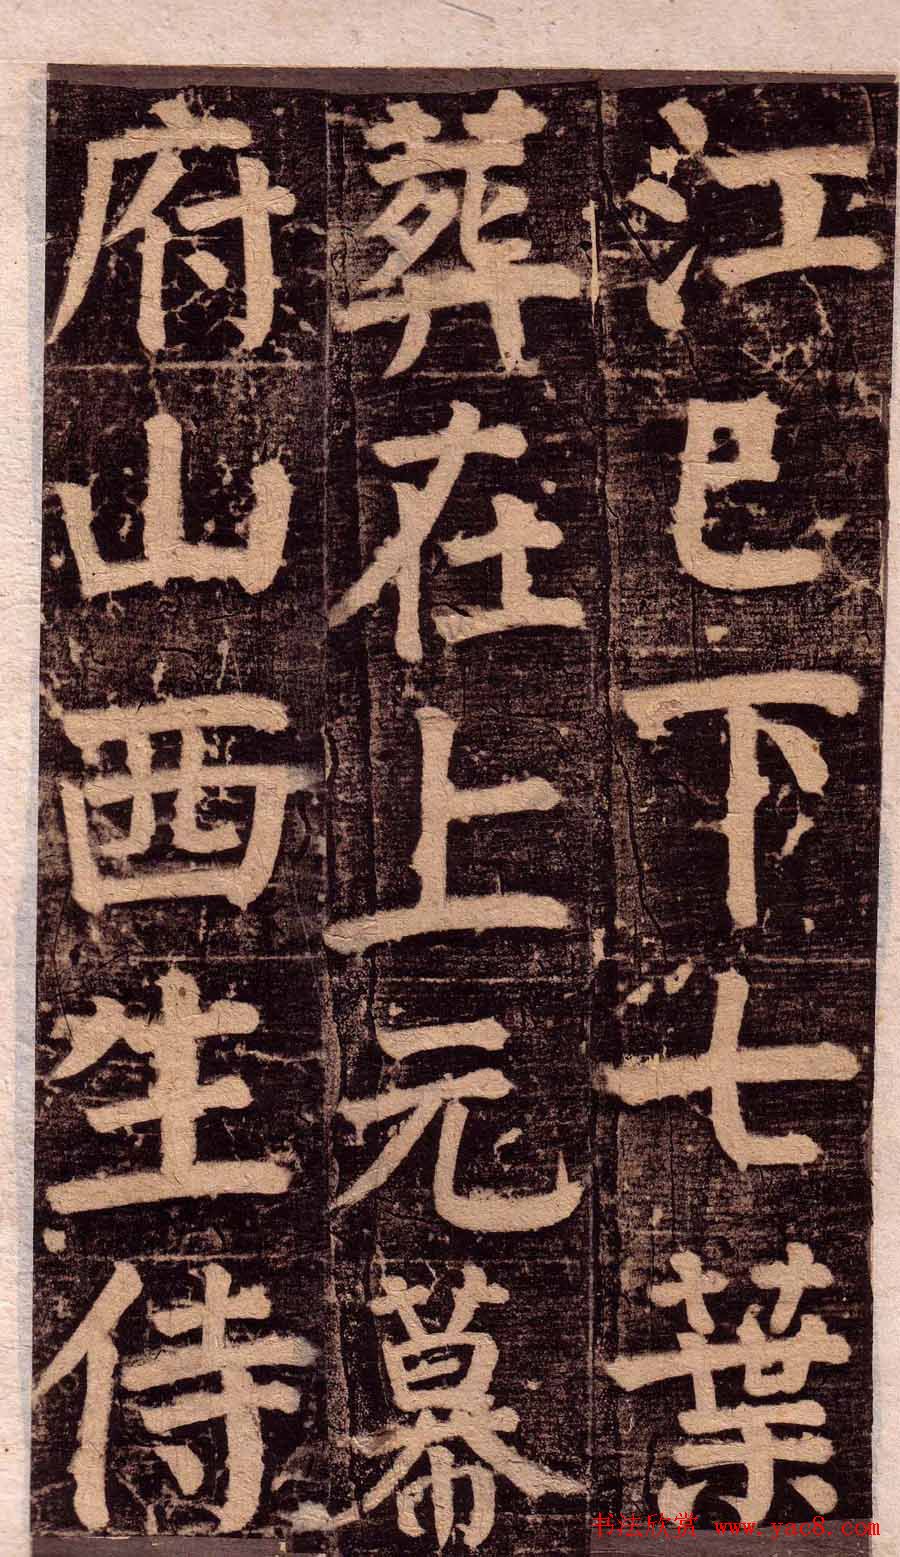 江已下七葉
葬在上元幕
府山西生侍
书法欣赏 www.yac8.com